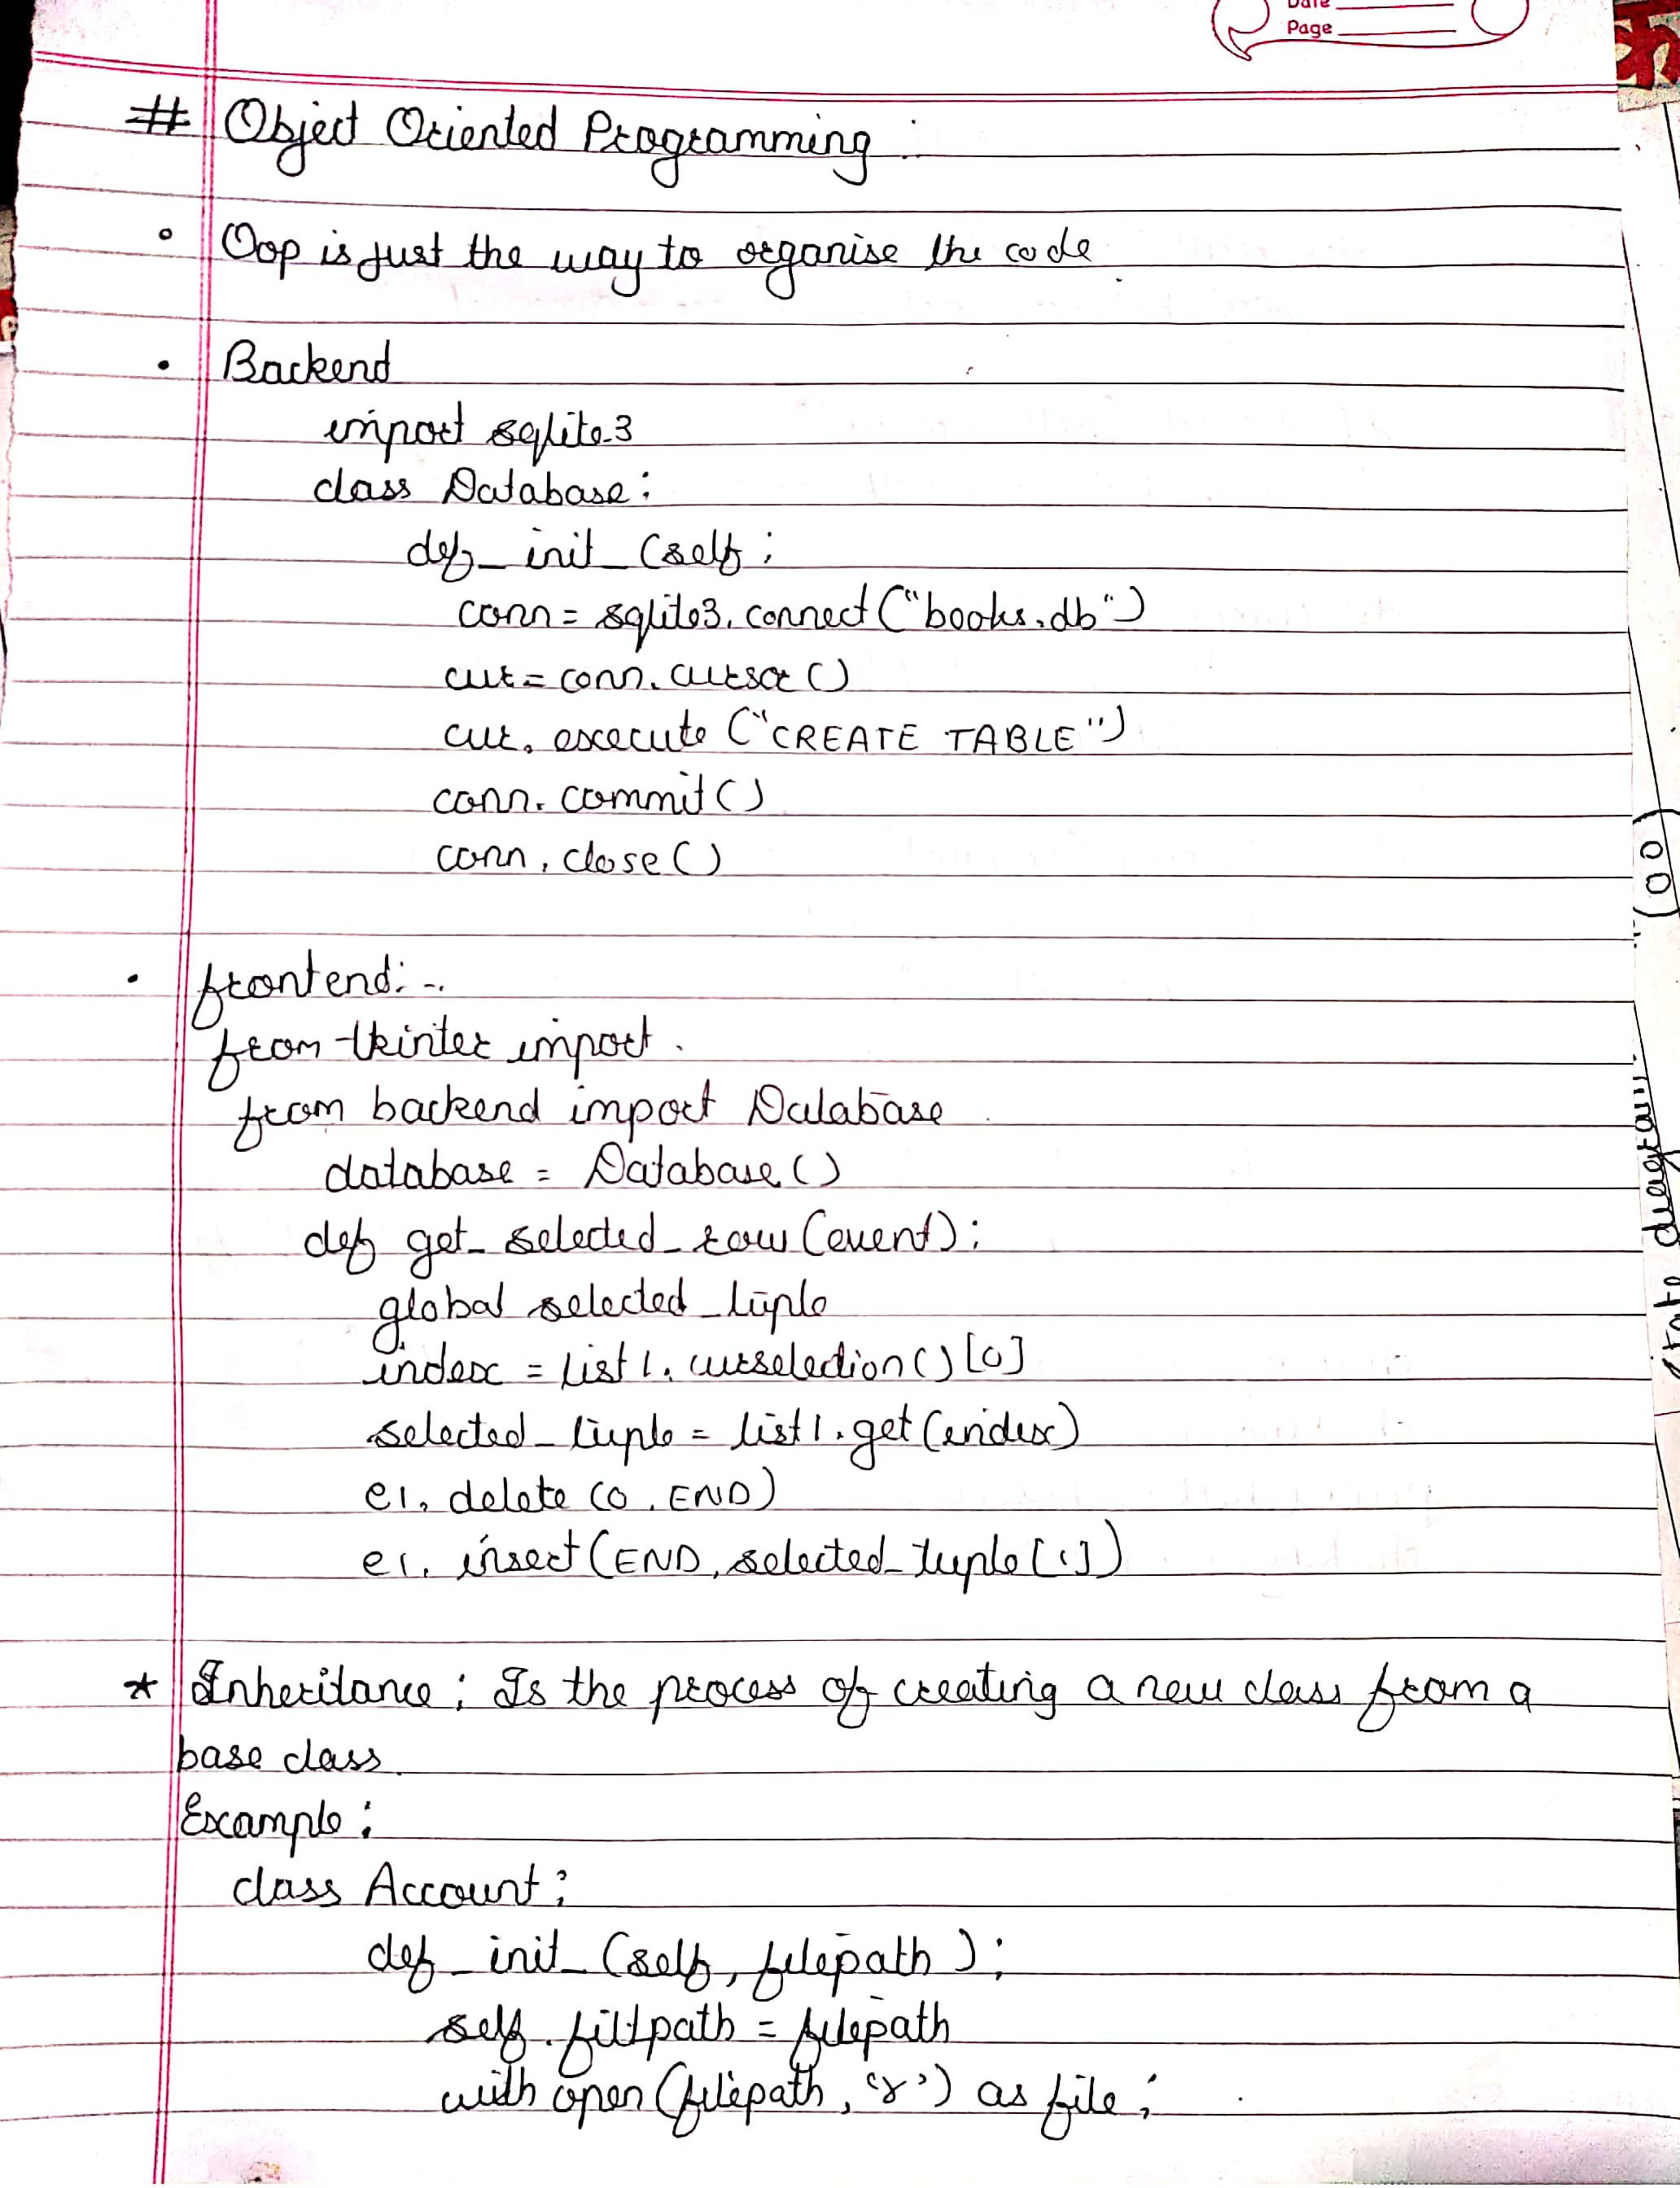 Date
Page
# Object Oriented Programming :
Oop is just the way to organise the code
• Backend
import sqlite3
class Database:
def_init_(self:
conn = sqlite3.connect("books.db")
cur = conn.cursor()
cur.execute("CREATE TABLE")
conn.commit()
conn.close()
• frontend:-
from tkinter import.
from backend import Database
database = Database()
def get_selected_row(event):
global selected_tuple
index = list1.curselection()[0]
selected_tuple = list1.get(index)
e1.delete(0,END)
e1.insert(END,selected_tuple[1])
* Inheritance: Is the process of creating a new class from a
base class.
Example:
class Account:
def_init_(self, filepath):
self.filepath = filepath
with open(filepath, 'r') as file:
(00)
state diagram